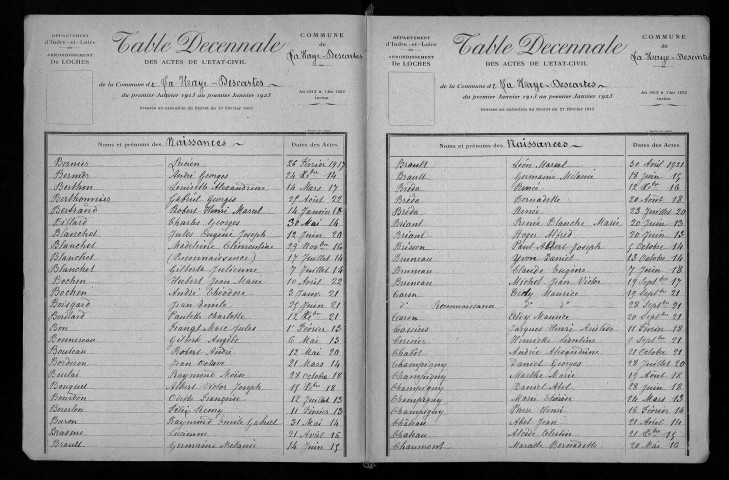 DÉPARTEMENT
d'Indre-et-Loire
ARRONDISSEMENT
De LOCHES
Table Decennale
DES ACTES DE L'ETAT-CIVIL
COMMUNE
de
La Haye-Descartes
de la Commune de La Haye-Descartes
du premier Janvier 1913 au premier Janvier 1923
An 1913 à l'An 1922
inclus
Dressée en exécution du Décret du
Noms et prénoms des Naissances
Dates des Actes
Bernier Lucien 26 Février 1917
Bernier André Georges 24 Xbre 14
Berthon Louisette Alexandrine 14 Mars 17
Berthonnier Gabriel Georges 27 Août 22
Bertrand Robert Henri Marcel 14 Janvier 18
Billard Charles Georges 30 Mai 14
Blanchet Jules Eugène Joseph 12 Juin 20
Blanchet Madeleine Clémentine 29 Nov 16
Blanchet (Reconnaissance) 17 Juillet 14
Blanchet Gilberte Julienne 7 Juillet 14
Bochen Hubert Jean Marie 10 Août 22
Bochen André Théodore 3 Janv. 21
Boisgard Jean Emile 25 Juin 21
Paulette Charlotte 12 Xbre 21
Bon Marc Jules 1er Février 13
Bonnereau Gilbert Angèle 6 Mai 13
Bouteau Robert André 12 Mai 20
Jean Octave 21 Mars 14
Raymond 28 Octobre 18
Bouquet Albert Victor Joseph 15 Xbre 18
Bourdon Odette Françoise 12 Juillet 13
Bourlon Félix Remy 11 Février 13
Buron Raymond Emile Gabriel 31 Mai 14
Brasme Suzanne 21 Avril 16
Brault Germaine Mélanie 14 Juin 15
DÉPARTEMENT
d'Indre-et-Loire
ARRONDISSEMENT
De LOCHES
Table Decennale
DES ACTES DE L'ETAT-CIVIL
COMMUNE
de
La Haye-Descartes
de la Commune de La Haye-Descartes
du premier Janvier 1913 au premier Janvier 1923
An 1913 à l'An 1922
inclus
Dressée en exécution du Décret du
Noms et prénoms des Naissances
Dates des Actes
Brault Léon Marcel 30 Août 1921
Brault Germaine Mélanie 18 Juin 15
Bréda Renée 12 Xbre 16
Bréda Bernadette 20 Août 18
Bréda Renée 23 Juillet 20
Briant Renée Blanche Marie 20 Juin 13
Briant Roger Alfred 20 Juin 13
Brisson Paul Albert Joseph 5 Octobre 14
Bruneau Yvon Daniel 13 Octobre 14
Bruneau Claude Eugène 7 Juin 18
Bruneau Michel Jean Victor 19 Sept 17
Caron Maurice 19 Sept 21
d° Reconnaissance d° d° 28 Sept 21
Caron Maurice 20 Sept 21
Jacques Henri Aristide 11 Février 18
Cercier Henriette 8 Sept 21
Chabot Andrée Alexandrine 21 Octobre 21
Champigny Daniel Georges 28 Juillet 20
Champigny Marthe Marie 19 Août 18
Champigny Daniel Abel 28 Juin 18
Champigny Marie Thérèse 14 Mars 13
Champigny Pierre Henri 16 Février 14
Château Abel Jean 21 Avril 14
Chateau Alcide Celestin 21 Xbre 15
Chaumont Marcelle Bernadette 20 Mai 16